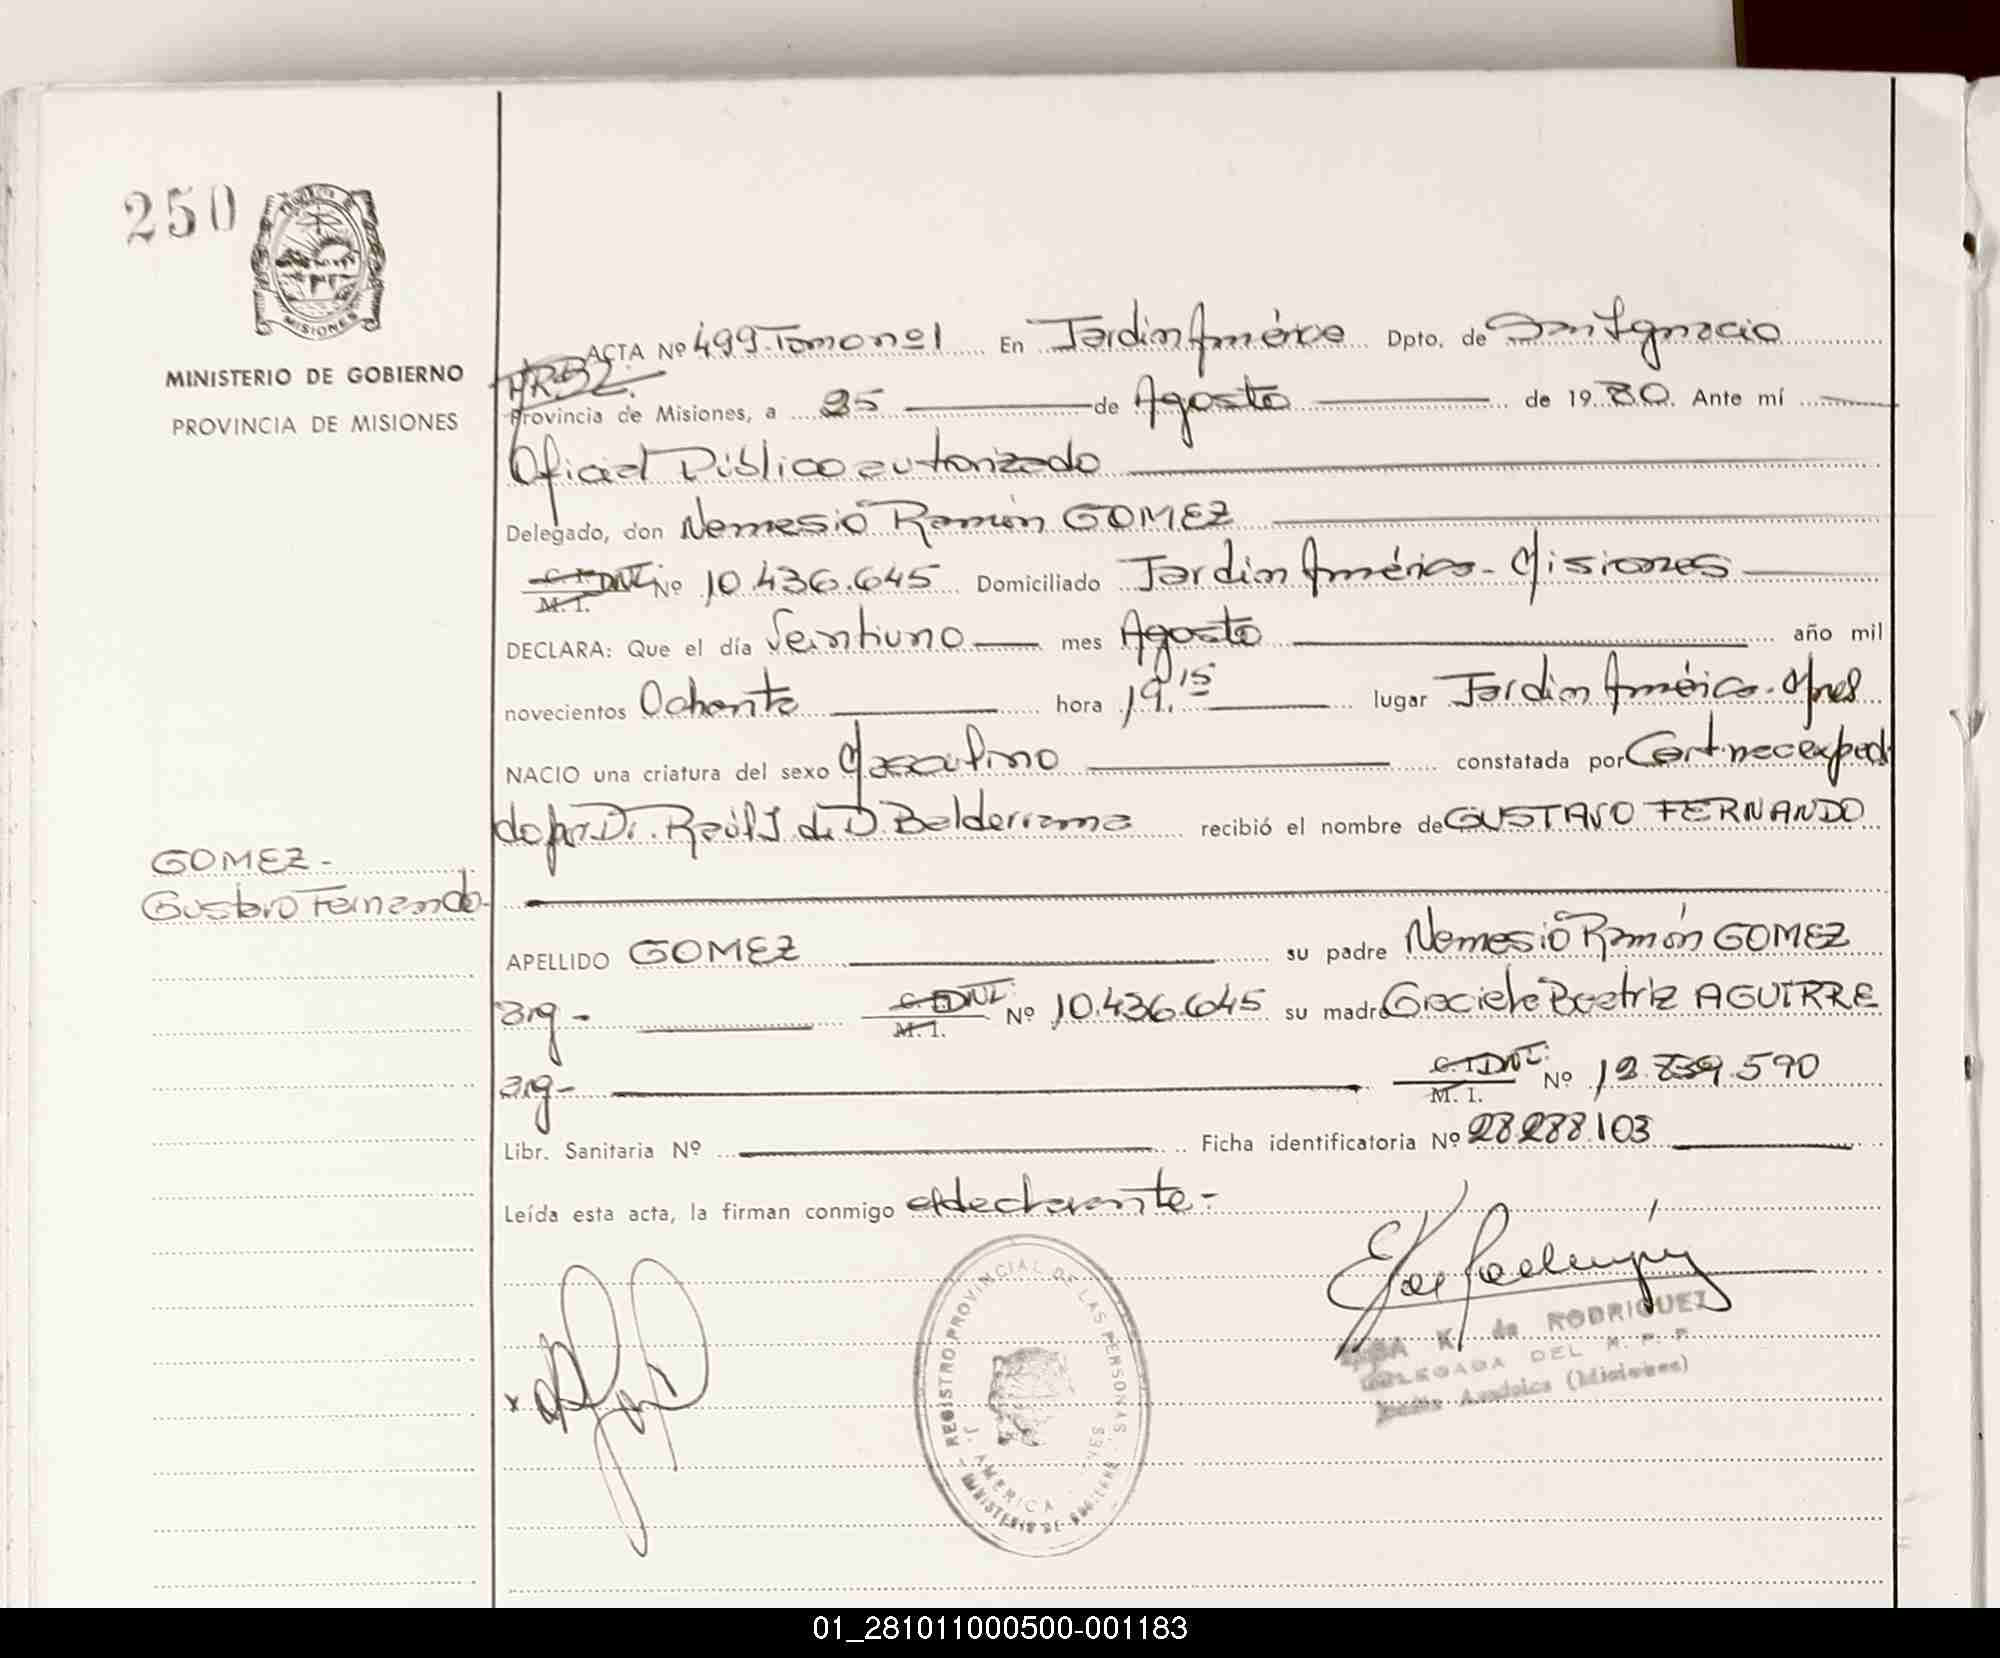 250
MISIONES
MINISTERIO DE GOBIERNO
PROVINCIA DE MISIONES
ACTA Nº 499. Tomo nº 1 En Jardin América Dpto. de San Ignacio
Provincia de Misiones, a 25 de Agosto de 1980. Ante mí
Oficial Público autorizado
Delegado, don Nemesio Ramón GOMEZ
C.I. DNI. Nº 10.436.645 Domiciliado Jardin América - Misiones
M. I.
DECLARA: Que el día Veintiuno mes Agosto año mil
novecientos Ochenta hora 19.15 lugar Jardin América. Mnes
NACIO una criatura del sexo Masculino constatada por Cert. nac expedi
do por Dr. Raúl J. de D. Balderrama recibió el nombre de GUSTAVO FERNANDO
GOMEZ -
Gustavo Fernando -
APELLIDO GOMEZ su padre Nemesio Ramón GOMEZ
arg - C.I. DNI. Nº 10.436.645 su madre Graciela Beatriz AGUIRRE
M. I.
arg - C.I. DNI. Nº 12.839.590
M. I.
Libr. Sanitaria Nº Ficha identificatoria Nº 28.288.103
Leída esta acta, la firman conmigo el declarante -
REGISTRO PROVINCIAL DE LAS PERSONAS
J. AMERICA
MINISTERIO DE
K. de RODRIGUEZ
DELEGADA DEL R. P. P.
Jardín América (Misiones)
01_281011000500-001183